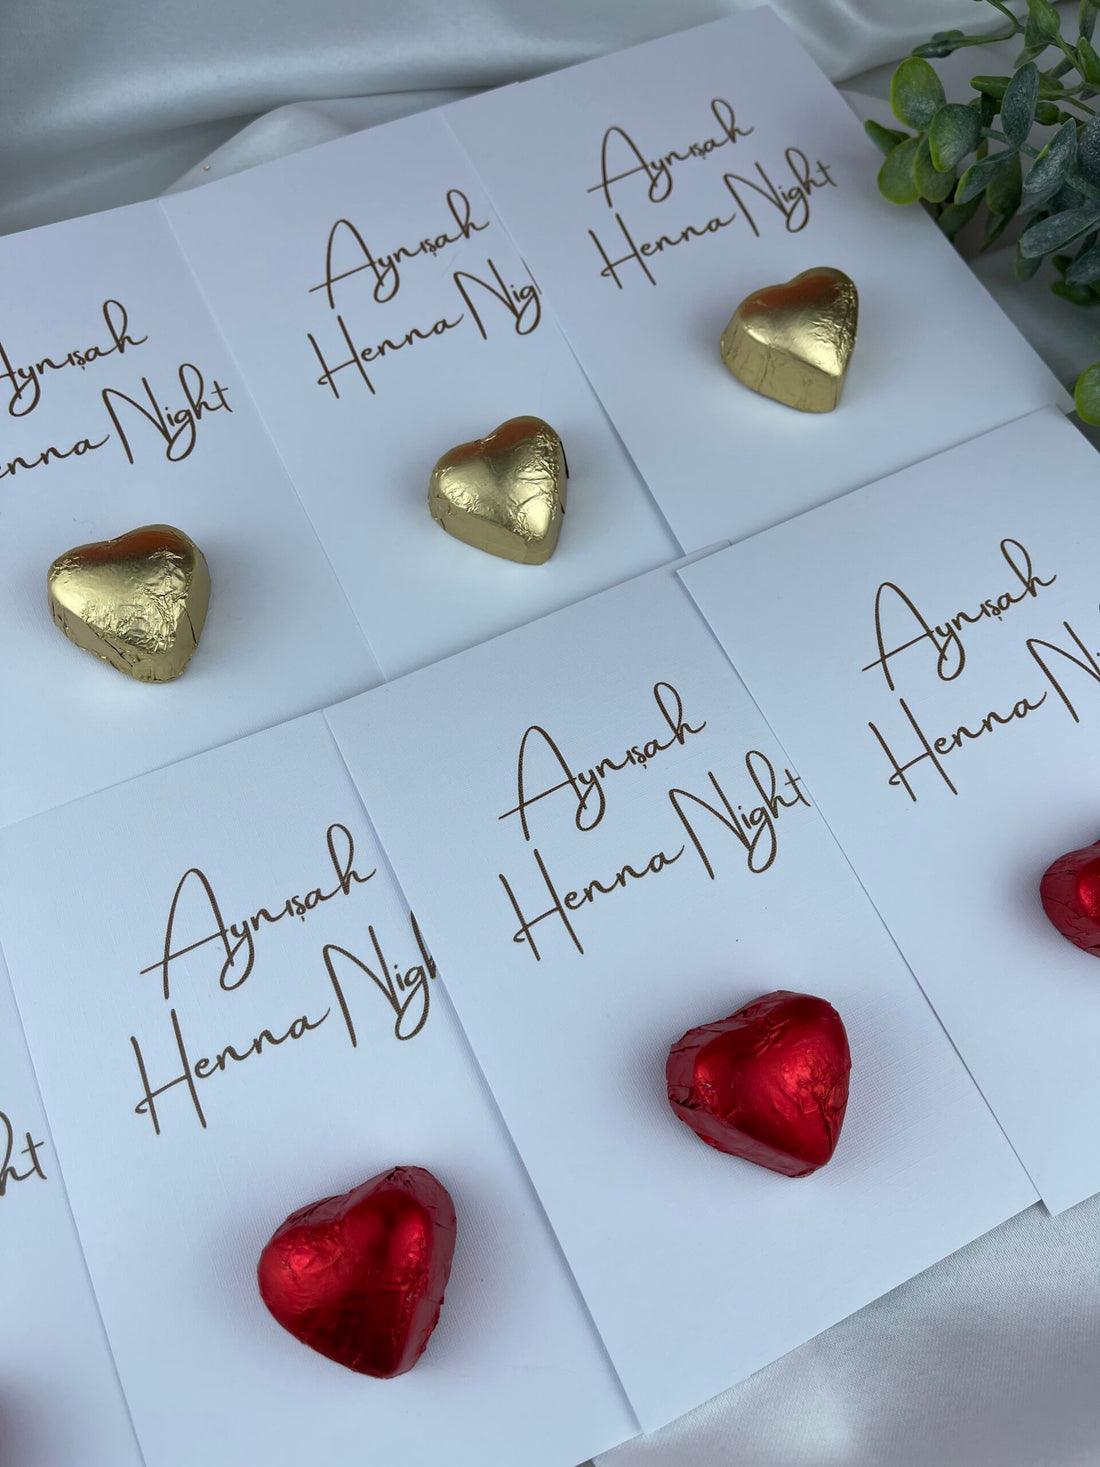 Aynışah
Henna Night
Aynışah
Henna Nig
Aynışah
enna Night
Aynışah
Henna N
Aynışah
Henna Night
Aynışah
Henna Nigh
ht